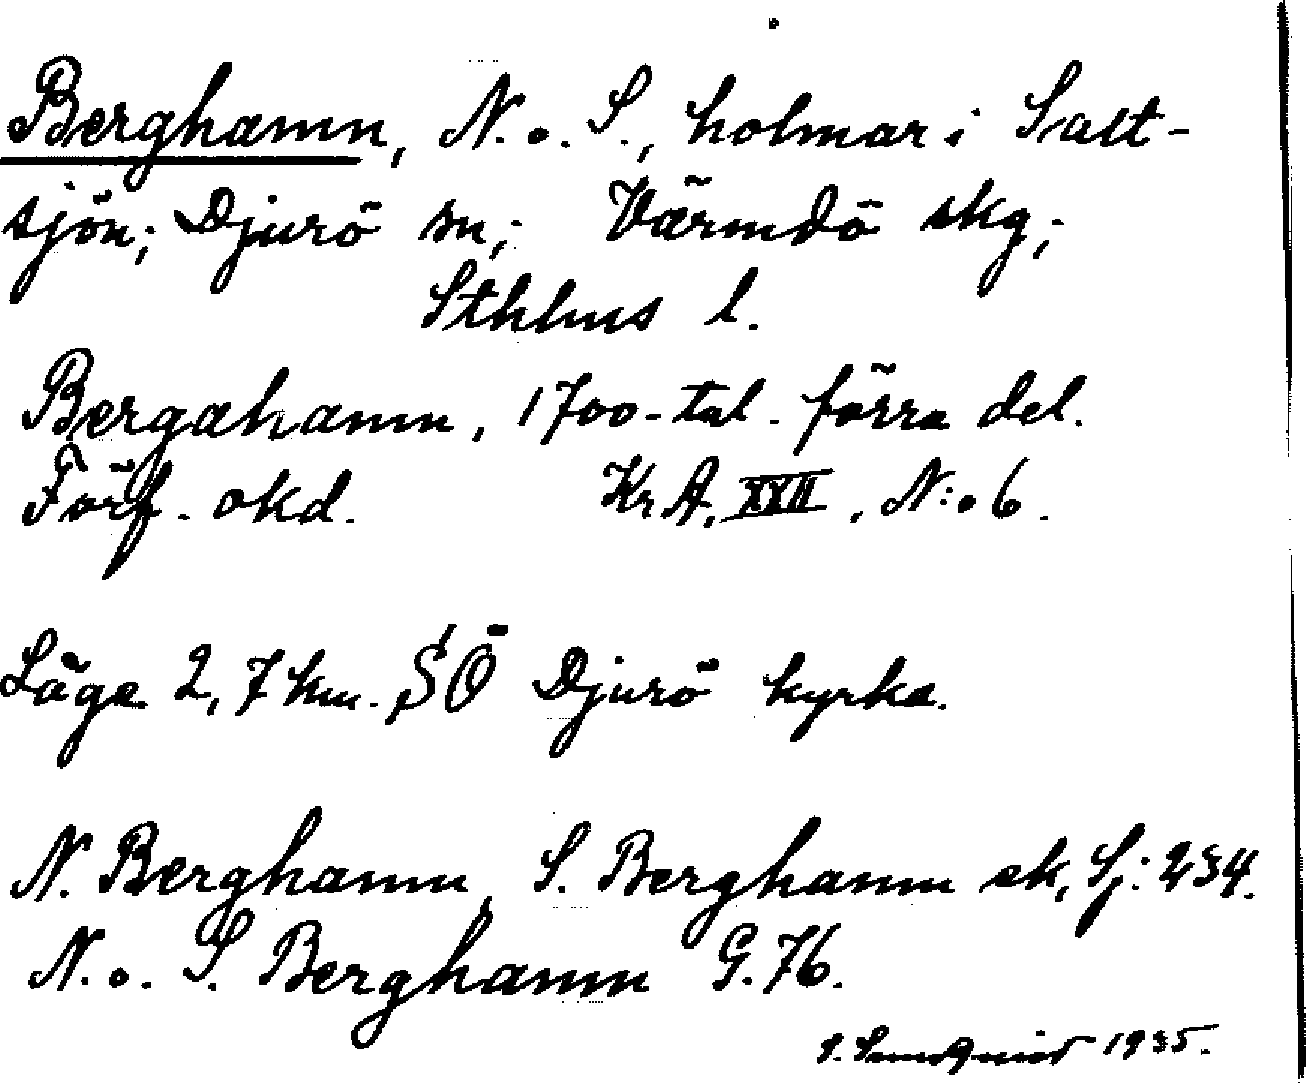 Berghamn, N. o. S., holmar i Salt-
sjön; Djurö sn; Värmdö skg;
Sthlms l.
Bergahamn, 1700-tal. förra del.
Förf. okd. KrA, XXII, N:o 6.
Läge 2,7 km. SÖ Djurö kyrka.
N. Berghamn, S. Berghamn ek, Sj: 234.
N. o. S. Berghamn G. 76.
1935.